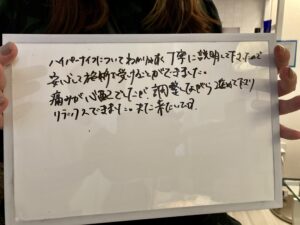 ハイパーナイフについてわかりやすく丁寧に説明して下さったので
安心して施術を受けることができました。
痛みが心配でしたが調整しながら進めて下さり
リラックスできました。また来たいです